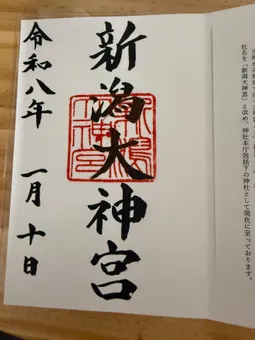 新潟大神宮
令和八年 一月十日
社名を「新潟大神宮」と改め、神社本庁包括下の神社として現在に至っております。